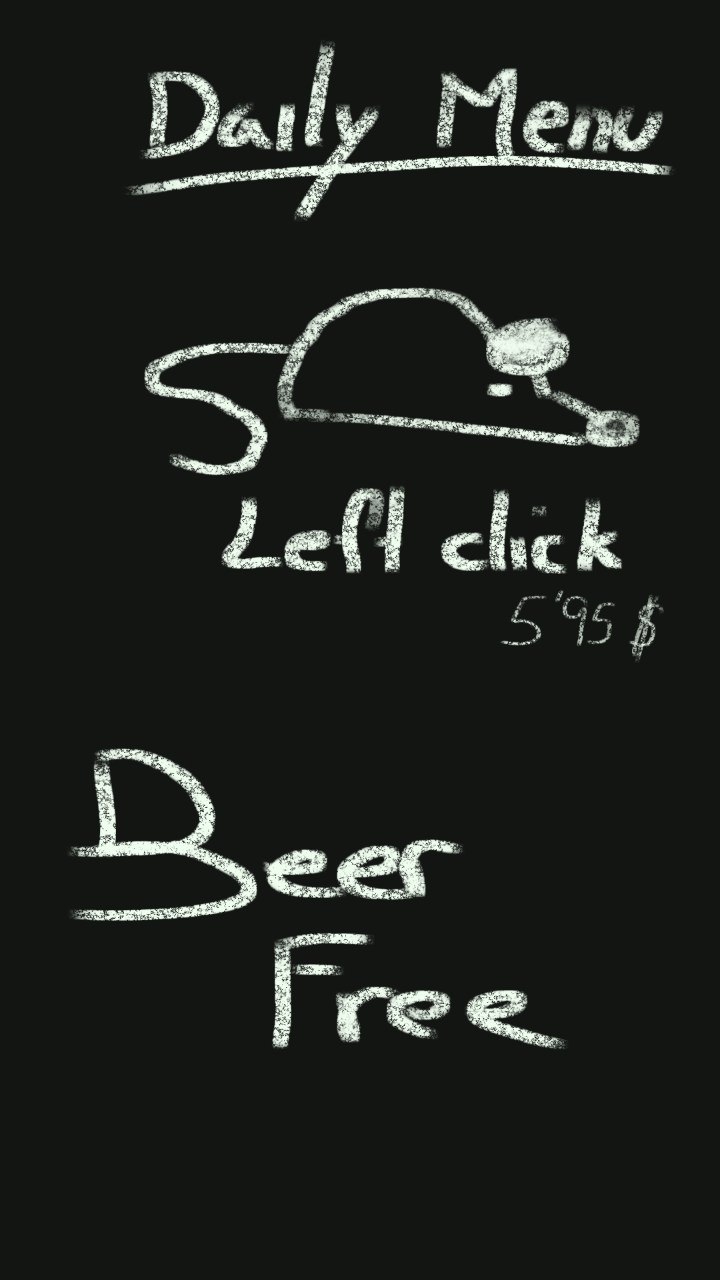 Daily Menu
Left click
5'95 $
Beer
Free